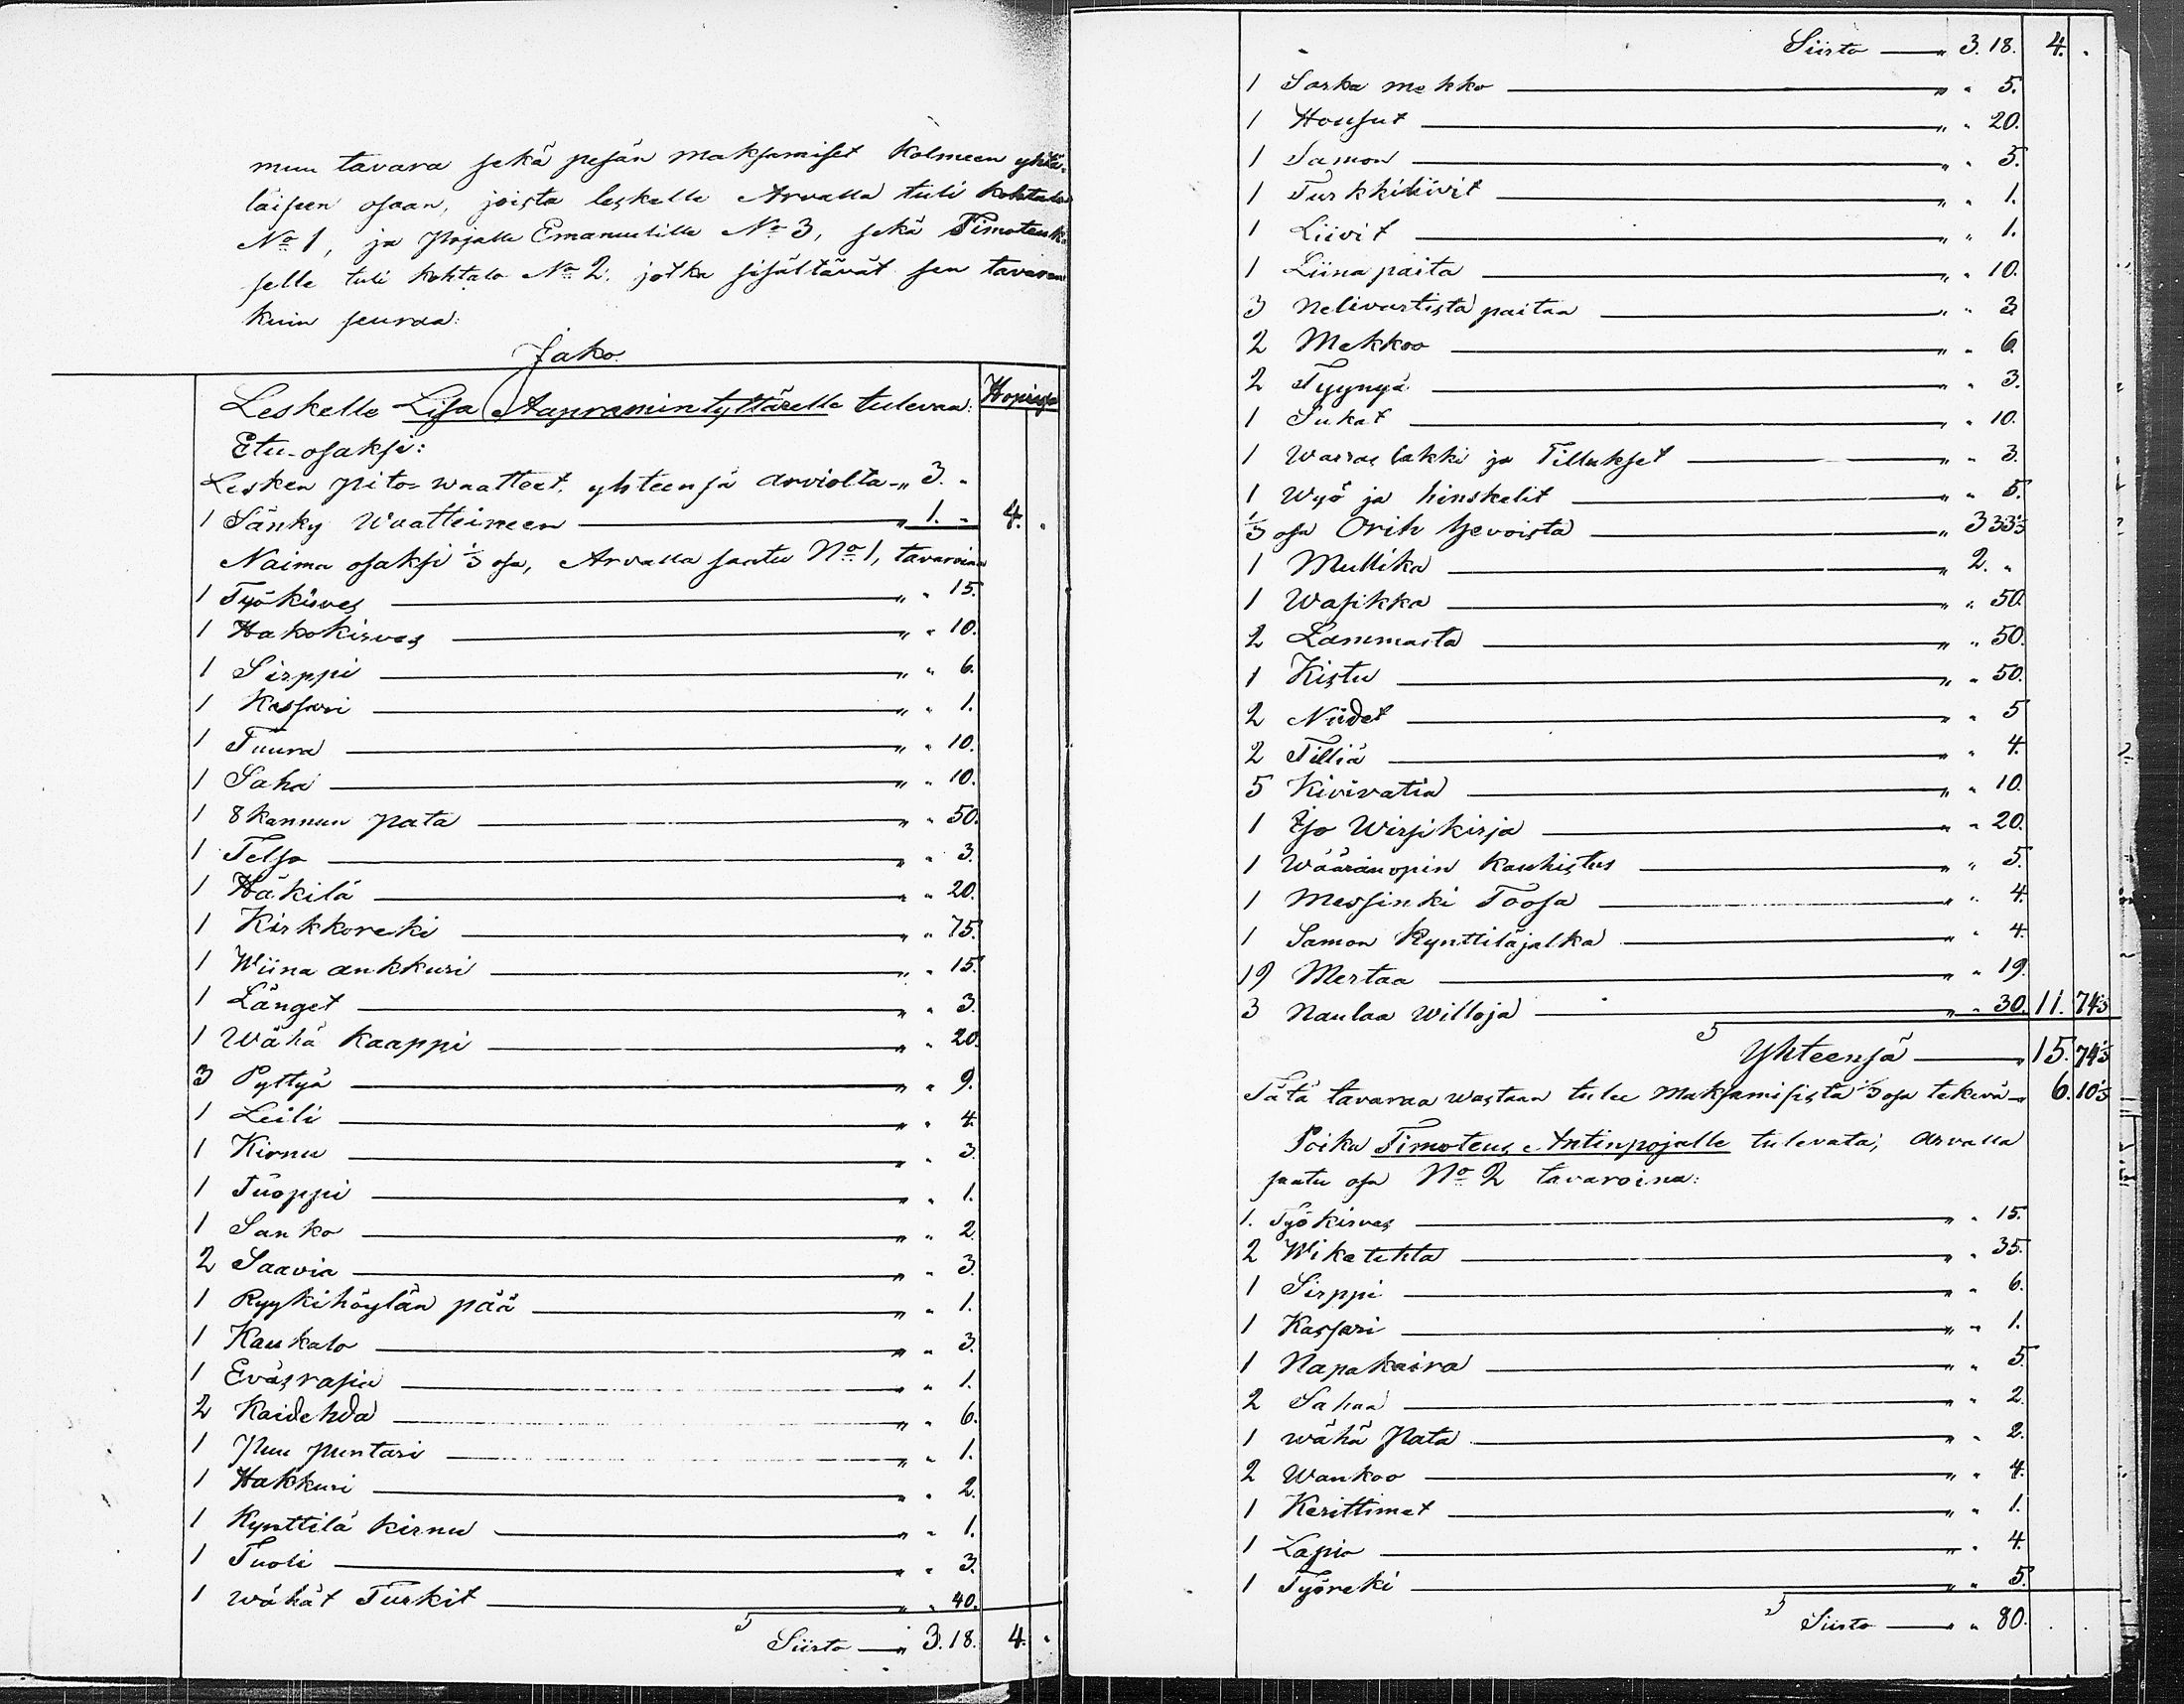 muu tavara sekä pesän maksamiset Kolmeen yhtä-
läiseen osaan, joista leskelle Arvalla tuli kohtalo
No 1, ja Pojalle Emanuelille No 3, sekä Timoteuk-
selle tuli kohtalo No 2. jotka sisältävät sen tavaran
kuin seuraa:
Jako
Leskelle Lisa Aapramintyttärelle tulevaa: Hopiassa
Etu-osaksi:
Lesken pito-waatteet, yhteensä arviolta „ 3. „
1 Sänky Waatteineen „ 1. „ 4. „
Naima osaksi 1/3 osa, Arvalla saatu No 1, tavaroina
1 Työkirves „ „ 15.
1 Hakokirves „ „ 10.
1 Sirppi „ „ 6.
1 Kassari „ „ 1.
1 Tuura „ „ 10.
1 Saha „ „ 10.
1 8 kannun pata „ „ 50.
1 Telso „ „ 3.
1 Häkilä „ „ 20.
1 Kirkkoreki „ „ 75.
1 Wiina ankkuri „ „ 15.
1 Länget „ „ 3.
1 Wähä Kaappi „ „ 20.
3 Pyttyä „ „ 9.
1 Leili „ „ 4.
1 Kirnu „ „ 3.
1 Tuoppi „ „ 1.
1 Sanko „ „ 2.
2 Saavia „ „ 3.
1 Ryykihöylän pää „ „ 1.
1 Kaukalo „ „ 3.
1 Eväsrasia „ „ 1.
2 Kaidehda „ „ 6.
1 Puu puntari „ „ 1.
1 Hakkuri „ „ 2.
1 Kynttilä kirnu „ „ 1.
1 Tuoli „ „ 3.
1 wähät Turkit „ „ 40.
Siirto „ 3.18. 4. „
Siirto „ 3.18. 4. „
1 Sarka mekko „ „ 5.
1 Housut „ „ 20.
1 Samon „ „ 5.
1 Turkkiliivit „ „ 1.
1 Liivit „ „ 1.
1 Liina paita „ „ 10.
3 Nelivartista paitaa „ „ 3
2 Mekkoo „ „ 6.
2 Tyynyä „ „ 3.
1 Sukat „ „ 10.
1 Warras lakki ja Tillukset „ „ 3.
1 Wyö ja hinskelit „ „ 5.
1/3 osa Orih hevoista „ 3 33 1/3
1 Mullika „ 2. „
1 Wasikka „ „ 50.
2 Lammasta „ „ 50.
1 Kistu „ „ 50.
2 Niidet „ „ 5
2 Tilliä „ „ 4.
5 Kivivatia „ „ 10.
1 Iso Wirsikirja „ „ 20.
1 Wääränopin Kauhistus „ „ 5.
1 Messinki Toosa „ „ 4.
1 Samon Kynttiläjalka „ „ 4.
19 Mertaa „ „ 19.
3 Naulaa Willoja „ „ 30. 11. 74 1/3
Yhteensä „ 15. 74 1/3
Tätä tavaraa wastaan tulee Maksamisista 1/3 osa tekevä „ 6. 10 1/3
Poika Timoteus Antinpojalle tulevata, arvalla
saatu osa No 2 tavaroina:
1. Työkirves „ „ 15.
2 Wikatehta „ „ 35.
1 Sirppi „ „ 6.
1 Kassari „ „ 1.
1 Napakaira „ „ 5
2 Sahaa „ „ 2.
1 wähä Pata „ „ 2.
2 Wankoo „ „ 4.
1 Kerittimet „ „ 1.
1 Lapio „ „ 4.
1 Työreki „ „ 5.
Siirto „ „ 80. . .